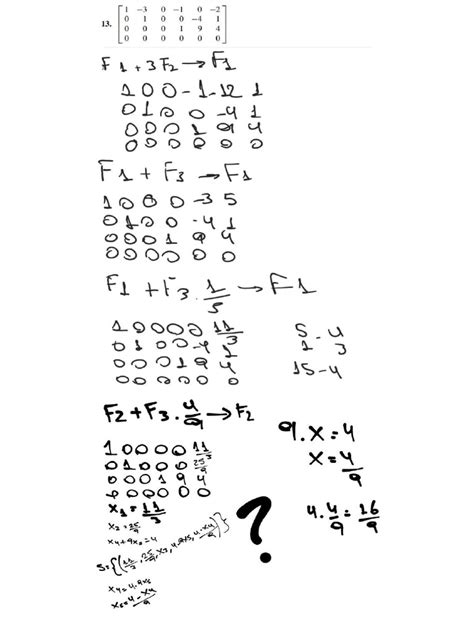 13. [1 -3 0 -1 0 -2
0 1 0 0 -4 1
0 0 0 1 9 4
0 0 0 0 0 0]
F1 + 3F2 → F1
1 0 0 -1 -12 1
0 1 0 0 -4 1
0 0 0 1 9 4
0 0 0 0 0 0
F1 + F3 → F1
1 0 0 0 -3 5
0 1 0 0 -4 1
0 0 0 1 9 4
0 0 0 0 0 0
F1 + F3 . 1/3 → F1
1 0 0 0 0 11/3
0 1 0 0 -4 1
0 0 0 1 9 4
0 0 0 0 0 0
5 - 4
1 3
15-4
F2 + F3 . 4/9 → F2
1 0 0 0 0 11/3
0 1 0 0 0 25/9
0 0 0 1 9 4
0 0 0 0 0 0
9.x = 4
x = 4/9
4.4/9 = 16/9
x1 = 11/3
x2 = 25/9
x4+9x5=4
S={(11/3, 25/9, x3, 4-9x5, 4-x4/9)}
x4=4-9x5
x5=4-x4/9
?